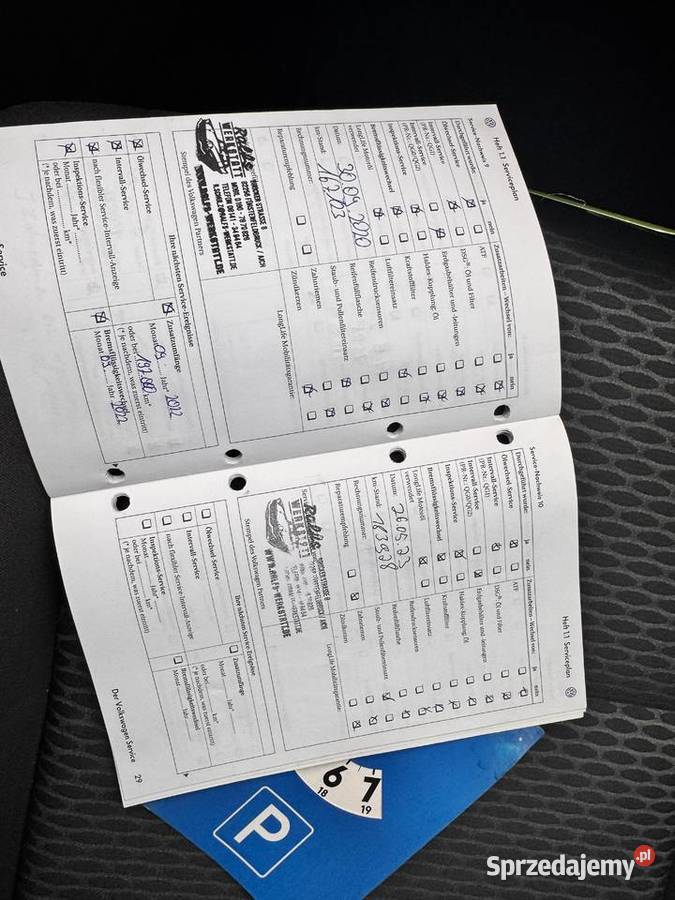 Heft 1.1 Serviceplan
Service-Nachweis 9
Durchgeführt wurde: ja nein
Ölwechsel-Service
Intervall-Service
(PR-Nr.: QG1)
Intervall-Service
(PR-Nr.: QG0/QG2)
Inspektions-Service
Bremsflüssigkeitswechsel
LongLife Motoröl
verwendet
Datum:
km-Stand:
Rechnungsnummer:
Reparaturempfehlung
Zusatzarbeiten – Wechsel von: ja nein
ATF
DSG®: Öl und Filter
Erdgasbehälter und -leitungen
Haldex-Kupplung: Öl
Kraftstofffilter
Luftfiltereinsatz
Reifendrucksensoren
Reifenfüllflasche
Staub- und Pollenfiltereinsatz
Zahnriemen
Zündkerzen
LongLife Mobilitätsgarantie:
Ralfs
WERKSTATT
Stempel des Volkswagen Partners
Ihre nächsten Service-Ereignisse
Ölwechsel-Service
Intervall-Service
nach flexibler Service-Intervall-Anzeige
Inspektions-Service
Monat Jahr*
oder bei km*
(* je nachdem, was zuerst eintritt)
Zusatzumfänge
Monat 09 Jahr* 2022
oder bei 192.000 km*
(* je nachdem, was zuerst eintritt)
Bremsflüssigkeitswechsel
Monat 09 Jahr 2022
Heft 1.1 Serviceplan
Service-Nachweis 10
Durchgeführt wurde: ja nein
Ölwechsel-Service
Intervall-Service
(PR-Nr.: QG1)
Intervall-Service
(PR-Nr.: QG0/QG2)
Inspektions-Service
Bremsflüssigkeitswechsel
LongLife Motoröl
verwendet
Datum: 26.09.23
km-Stand: 183928
Rechnungsnummer:
Reparaturempfehlung
Zusatzarbeiten – Wechsel von: ja nein
ATF
DSG®: Öl und Filter
Erdgasbehälter und -leitungen
Haldex-Kupplung: Öl
Kraftstofffilter
Luftfiltereinsatz
Reifendrucksensoren
Reifenfüllflasche
Staub- und Pollenfiltereinsatz
Zahnriemen
Zündkerzen
LongLife Mobilitätsgarantie:
Ralfs
WERKSTATT
WWW.RALFS-WERKSTATT.DE
Stempel des Volkswagen Partners
Ihre nächsten Service-Ereignisse
Ölwechsel-Service
Intervall-Service
nach flexibler Service-Intervall-Anzeige
Inspektions-Service
Monat Jahr*
oder bei km*
(* je nachdem, was zuerst eintritt)
Zusatzumfänge
Monat Jahr*
oder bei km*
(* je nachdem, was zuerst eintritt)
Bremsflüssigkeitswechsel
Monat Jahr
Der Volkswagen Service 29
Service
6 7
18 19
P
Sprzedajemy.pl